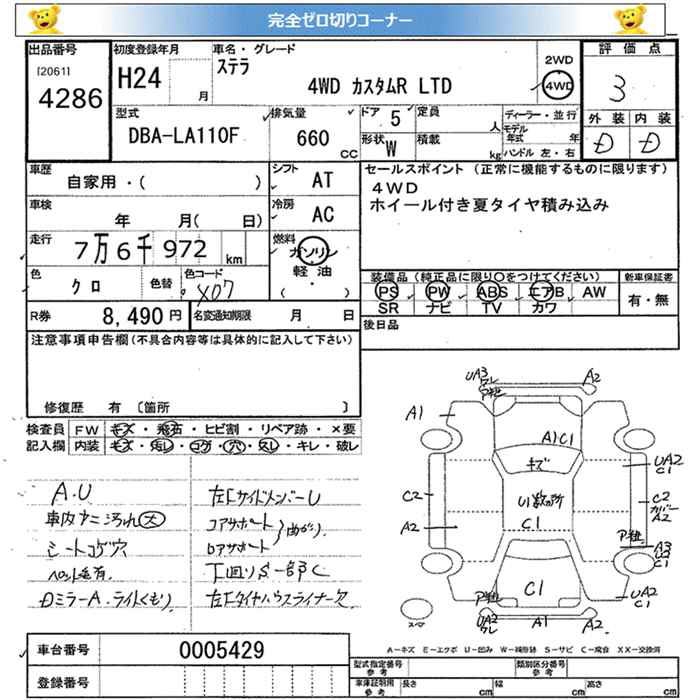 完全ゼロ切りコーナー
出品番号
[2061]
4286
初度登録年月
H24
月
車名・グレード
ステラ
4WD カスタムR LTD
2WD
4WD
評価点
3
型式
DBA-LA110F
排気量
660
CC
ドア 5
定員
人
形状 W
積載
kg
ディーラー・並行
モデル年式
年
ハンドル 左・右
外装
内装
D
D
車歴
自家用・( )
シフト
AT
車検
年 月( 日)
冷房
AC
走行
7万6千972 km
燃料
ガソリン
軽油
( ・ )
色
クロ
色替
色コード
X07
R券
8,490 円
名変通知期限
月 日
セールスポイント (正常に機能するものに限ります)
4WD
ホイール付き夏タイヤ積み込み
装備品 (純正品に限り○をつけてください)
PS PW ABS エアB AW
SR ナビ TV カワ
新車保証書
有・無
後日品
注意事項申告欄(不具合内容等は具体的に記入して下さい)
修復歴 有 〔箇所 〕
検査員
記入欄
FW キズ・飛石・ヒビ割・リペア跡・×要
内装 キズ・汚レ・コゲ・穴・スレ・キレ・破レ
A.U
車内ヤニ汚れ大
シートコゲ穴
ペット毛有
Dミラー A・ライトくもり
左Fサイドメンバー U
コアサポート
ロアサポート
曲がり
下回り S 一部 C
左Fタイヤハウスライナー欠
UA3
ワレ
P粗
A2
A1
A1C1
キズ
UA2
C1
C2
U1数ヶ所
C1
C2
カバー
A2
A2
P粗
A3
U3
C1
C1
P粗
UA2
ワレ
A1
A2
C1
UA2
C1
スペア
A=キズ E=エクボ U=凹み W=補修跡 S=サビ C=腐食 XX=交換済
車台番号
0005429
登録番号
型式指定番号
参考
類別区分番号
参考
車庫証明用
参考
長さ cm
幅 cm
高さ cm